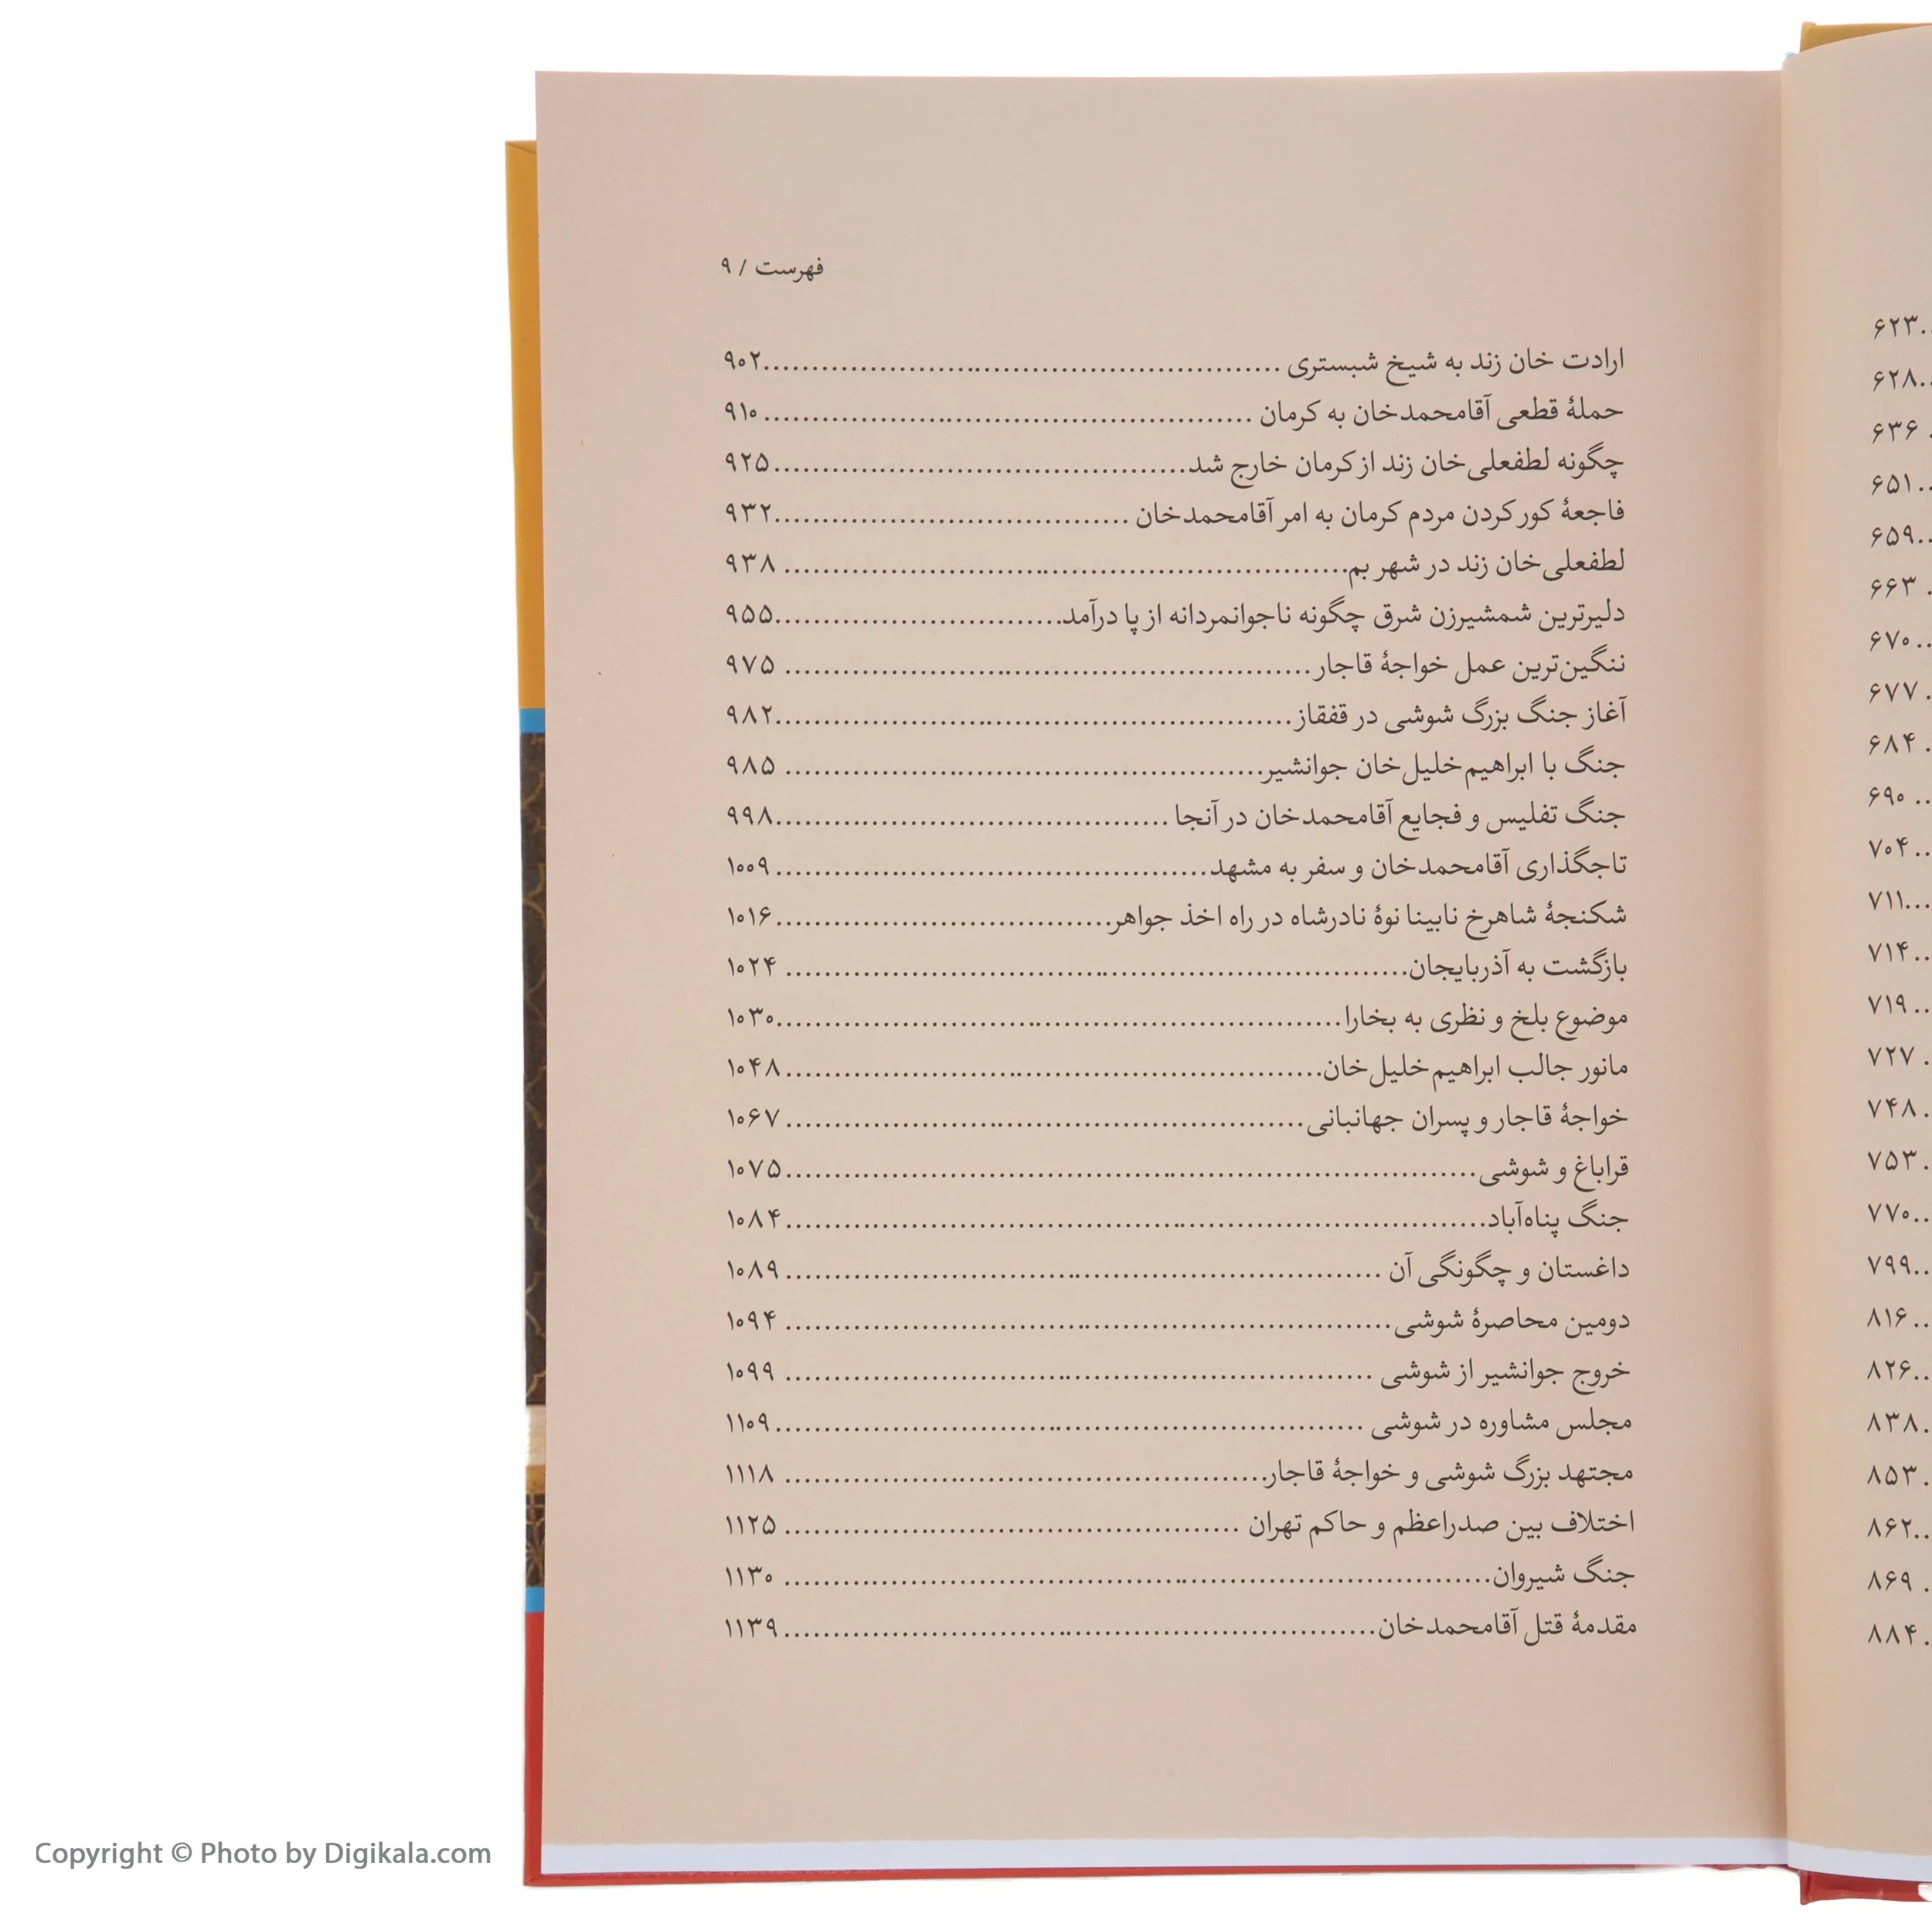 ۶۲۳..
۶۲۸..
۶۳۶ .
۶۵۱..
۶۵۹..
۶۶۳ .
۶۷۰..
۶۷۷ .
۶۸۴ .
۶۹۰ ..
۷۰۴ ..
۷۱۱...
۷۱۴ ..
۷۱۹ ..
۷۲۷ .
۷۴۸ .
۷۵۳ .
۷۷۰..
۷۹۹..
۸۱۶ ..
۸۲۶..
۸۳۸.
۸۵۳ .
۸۶۲..
۸۶۹ .
۸۸۴ .
فهرست / ۹
ارادت خان زند به شیخ شبستری ........ ۹۰۲
حملهٔ قطعی آقامحمدخان به کرمان ........ ۹۱۰
چگونه لطفعلی‌خان زند از کرمان خارج شد........ ۹۲۵
فاجعهٔ کور کردن مردم کرمان به امر آقامحمدخان ........ ۹۳۲
لطفعلی‌خان زند در شهر بم........ ۹۳۸
دلیرترین شمشیرزن شرق چگونه ناجوانمردانه از پا درآمد........ ۹۵۵
ننگین‌ترین عمل خواجهٔ قاجار........ ۹۷۵
آغاز جنگ بزرگ شوشی در قفقاز........ ۹۸۲
جنگ با ابراهیم‌خلیل‌خان جوانشیر........ ۹۸۵
جنگ تفلیس و فجایع آقامحمدخان در آنجا ........ ۹۹۸
تاجگذاری آقامحمدخان و سفر به مشهد........ ۱۰۰۹
شکنجهٔ شاهرخ نابینا نوهٔ نادرشاه در راه اخذ جواهر........ ۱۰۱۶
بازگشت به آذربایجان........ ۱۰۲۴
موضوع بلخ و نظری به بخارا........ ۱۰۳۰
مانور جالب ابراهیم‌خلیل‌خان........ ۱۰۴۸
خواجهٔ قاجار و پسران جهانبانی........ ۱۰۶۷
قراباغ و شوشی........ ۱۰۷۵
جنگ پناه‌آباد........ ۱۰۸۴
داغستان و چگونگی آن ........ ۱۰۸۹
دومین محاصرهٔ شوشی........ ۱۰۹۴
خروج جوانشیر از شوشی ........ ۱۰۹۹
مجلس مشاوره در شوشی ........ ۱۱۰۹
مجتهد بزرگ شوشی و خواجهٔ قاجار........ ۱۱۱۸
اختلاف بین صدراعظم و حاکم تهران ........ ۱۱۲۵
جنگ شیروان........ ۱۱۳۰
مقدمهٔ قتل آقامحمدخان........ ۱۱۳۹
Copyright © Photo by Digikala.com